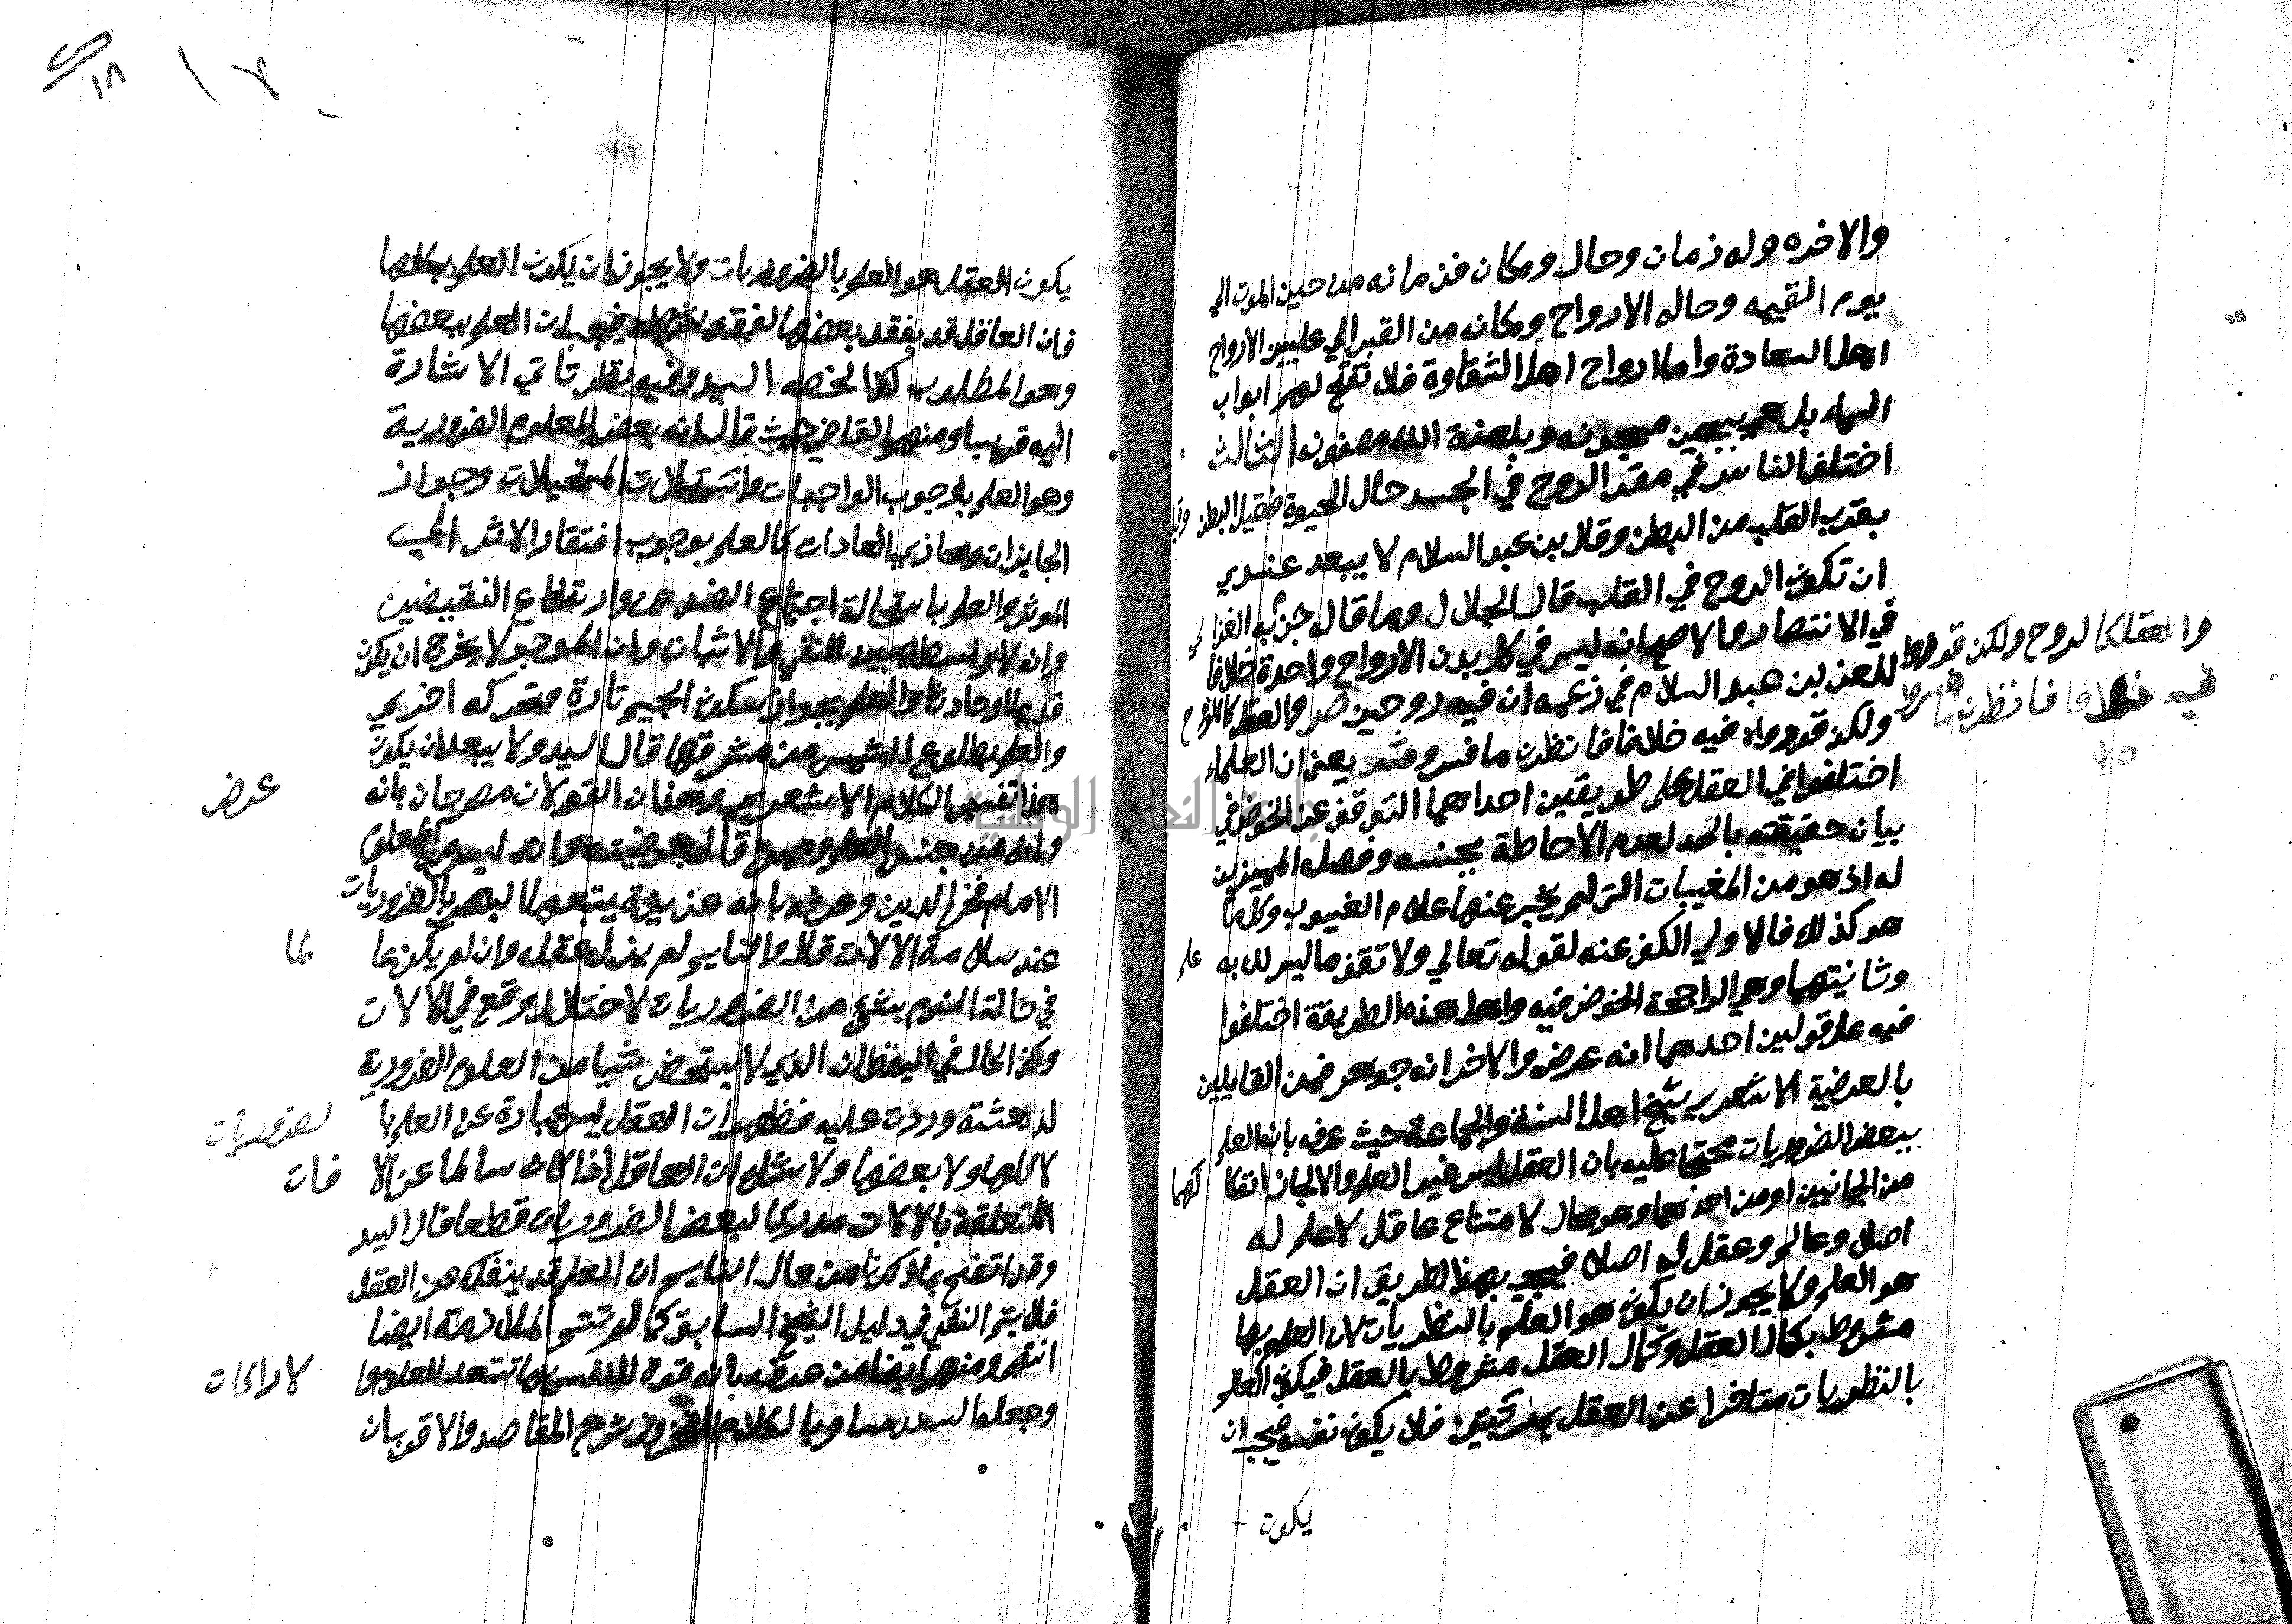 والاخره وله زمان وحال ومكان فزمانه من حين الموت الي
يوم القيمه وحاله الارواح ومكانه من القبر الي عليين لارواح
اهل السعادة واما ارواح اهل الشقاوة فلا تفتح لهم ابواب
السماء بل هي بسجين مسجونه وبلعنة الله مصفونه الثالث
اختلف الناس في مقر الروح في الجسد حال الحيوة فقيل البطن وقيل
بقرب القلب من البطن وقال بن عبد السلام لا يبعد عندي
ان تكون الروح في القلب قال الجلال وما قاله جزم به الغزالي
في الانتصار والاصح انه ليس في كل بدن الارواح واحدة خلافا
للعز بن عبد السلام في زعمه ان فيه روحين ص والعقل كالروح
ولكن قرروا فيه خلافا فانظرن ما فسروا ش يعني ان العلماء
اختلفوا في العقل علي طريقين احداهما التوقف عن الخوض في
بيان حقيقته بالحد لعدم الاحاطة بجنسه وفصله المميزين
له اذ هو من المغيبات التي لم يخبر عنها علام الغيوب وكل ما
هو كذلك فالاولي الكف عنه لقوله تعالي ولا تقف ما ليس لك به علم
وثانيتهما وهي الراجحة الخوض فيه واهل هذه الطريقة اختلفوا
فيه علي قولين احدهما انه عرض والاخر انه جوهر فمن القايلين
بالعرضية الاشعري شيخ اهل السنة والجماعة حيث عرفه بانه العلم
ببعض الضروريات محتجا عليه بان العقل ليس غير العلم والا لجاز انفكاكهما
من الجانبين او من احدهما وهو محال لامتناع عاقل لا علم له
اصلا وعالم وعقل له اصلا فيجي بهذا الطريق ان العقل
هو العلم ولا يجوز ان يكون هو العلم بالنظريات لان العلم بها
مشروط بكمال العقل وكمال العقل مشروط بالعقل فيكون العلم
بالنظريات متاخرا عن العقل بمرتبتين فلا يكون نفسه فيجب ان
يكون
والعقل كالروح ولكن قرروا
فيه خلافا فانظرن ما
يكون العقل هو العلم بالضروريات ولا يجوز ان يكون العلم بكلها
فان العاقل قد يفقد بعضها لفقد شرطه فيجب ان العلم ببعضها
وهو المطلوب كذا لخصه السيد وفيه نظر تاتي الاشارة
اليه قريبا ومنهم القاضي حيث قال انه بعض العلوم الضرورية
وهو العلم بوجوب الواجبات واستحالات المستحيلات وجواز
الجايزات ومجاري العادات كالعلم بوجوب افتقار الاثر الي
الموثر والعلم باستحالة اجتماع الضدين وارتفاع النقيضين
وانه لا واسطة بين النفي والاثبات وان الموجود لا يخرج ان يكون
قديما او حادثا والعلم بجواز سكون الجسم تارة وتحركه اخري
والعلم بطلوع الشمس من مشرقها قال السيد ولا يبعد ان يكون
هذا تفسير الكلام الاشعري وهذان القولان مصرحان بانه عرض
وانه من جنس العلوم وممن قال بعرضيته وانه ليس من العلوم
الامام فخر الدين وعرفه بانه غريزة يتبعها العلم بالضروريات
عند سلامة الالات قال والنايم لم يزل عقله وان لم يكن عالما
في حالة النوم بشيء من الضروريات لاختلال وقع في الالات
وكذا الحال في اليقظان الذي لا يستحضر شيا من العلوم الضرورية
لدهشة وردت عليه فظهر ان العقل ليس عبارة عن العلم بالضروريات
لا كلها ولا بعضها ولا شك ان العاقل اذا كان سالما عن الافات
المتعلقة بالالات مدركا لبعض الضروريات قطعا قال السيد
وقد اتضح بما ذكرنا من حال النايم ان العلم قد ينفك عن العقل
فلا يتم النفي في دليل الشيخ السابق كما لا تتم الملازمة ايضا
انتهي ومنهم ايضا من عرفه بانه قوة للنفس بها تستعد للعلوم والادراكات
وجعله السعد مساويا لكلام الفخر وفي شرح المقاصد والاقرب ان